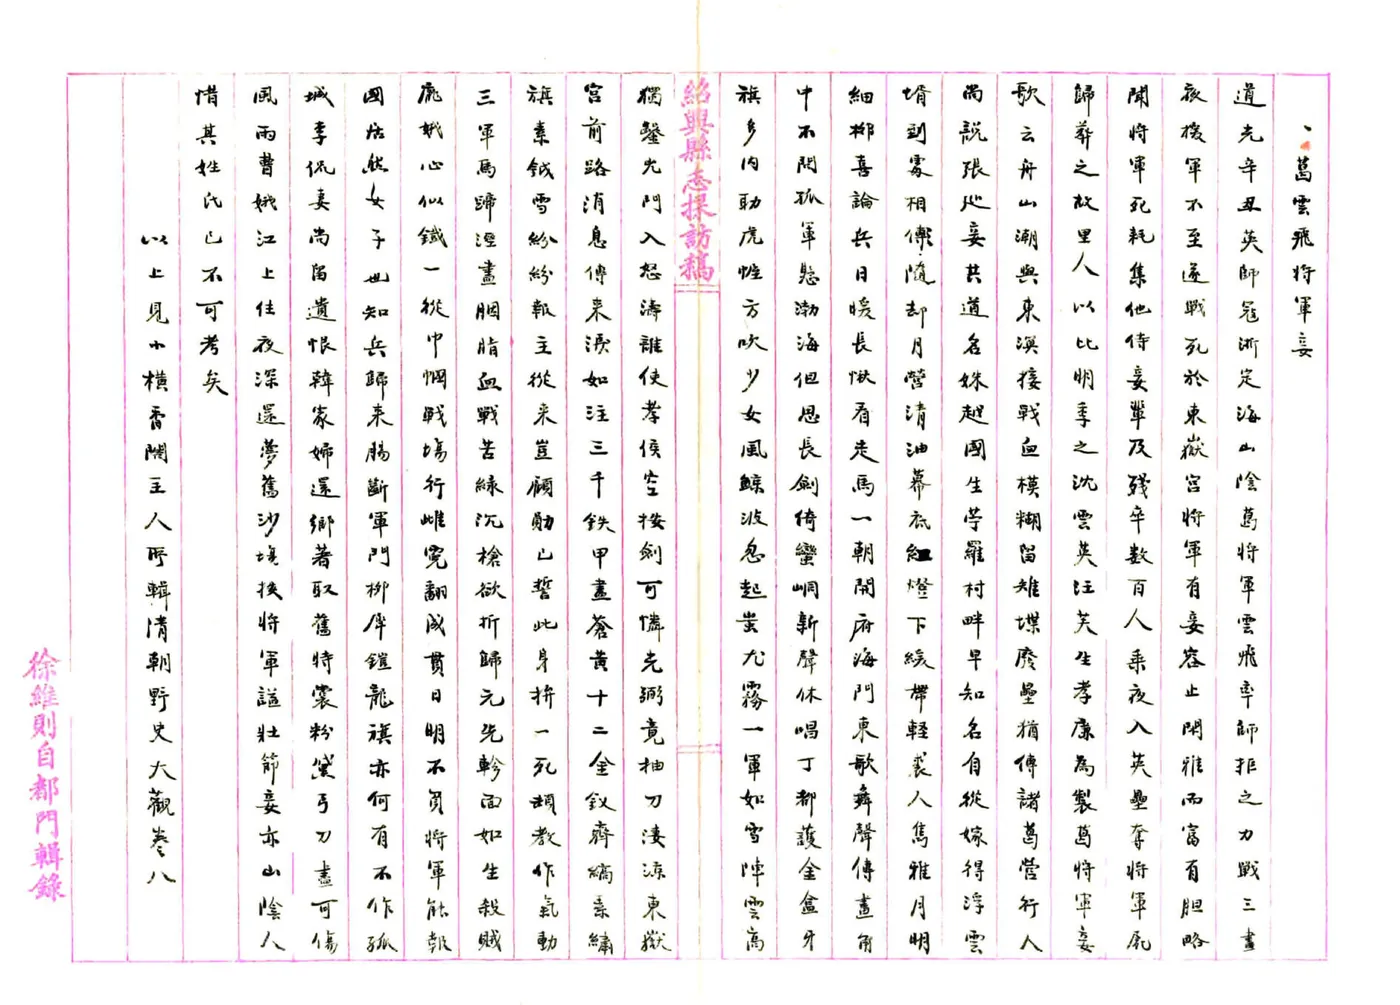 葛雲飛將軍妾
道光辛丑英師冦浙定海山陰葛將軍雲飛率師拒之力戰三晝
夜援軍不至遂戰死於東嶽宮將軍有妾容止閑雅而富有胆略
聞將軍死耗集他侍妾輩及殘卒數百人乘夜入英壘奪將軍屍
歸葬之故里人以比明季之沈雲英汪芙生孝廉為製葛將軍妾
歌云舟山潮與東溟接戰血模糊留雉堞廢壘猶傳諸葛營行人
尚說張廵妾共道名姝越國生苧羅村畔早知名自從嫁得浮雲
壻到處相傳隨却月營清油幕底紅燈下緩帶輕裘人雋雅月明
細柳喜論兵日暖長楸看走馬一朝開府海門東歌舞聲傳畫角
中不問孤軍懸渤海但思長劍倚蠻峒新聲休唱丁都護金盒牙
旗多內助虎帷方吹少女風鯨波忽起蚩尤霧一軍如雪陣雲高
紹興縣志採訪稿
獨鑿凶門入怒濤誰使孝侯空按劍可憐光弼竟抽刀淒涼東嶽
宮前路消息傳來淚如注三千鉄甲盡蒼黃十二金釵齊縞素繡
旗素鉞雪紛紛報主從來豈顧勛已誓此身拚一死頓教作氣動
三軍馬蹄溼盡胭脂血戰苦綠沉槍欲折歸元先軫面如生殺賊
龐娥心似鐵一從巾幗戰塲行雌霓翻成貫日明不負將軍能報
國居然女子也知兵歸來腸斷軍門柳犀鎧龍旗亦何有不作孤
城李侃妻尚留遺恨韓家婦還鄉著取舊時裳粉黛弓刀盡可傷
風雨曹娥江上住夜深還夢舊沙塲按將軍諡壯節妾亦山陰人
惜其姓氏已不可考矣
以上見小橫香閣主人所輯清朝野史大觀卷八
徐維則自都門輯錄